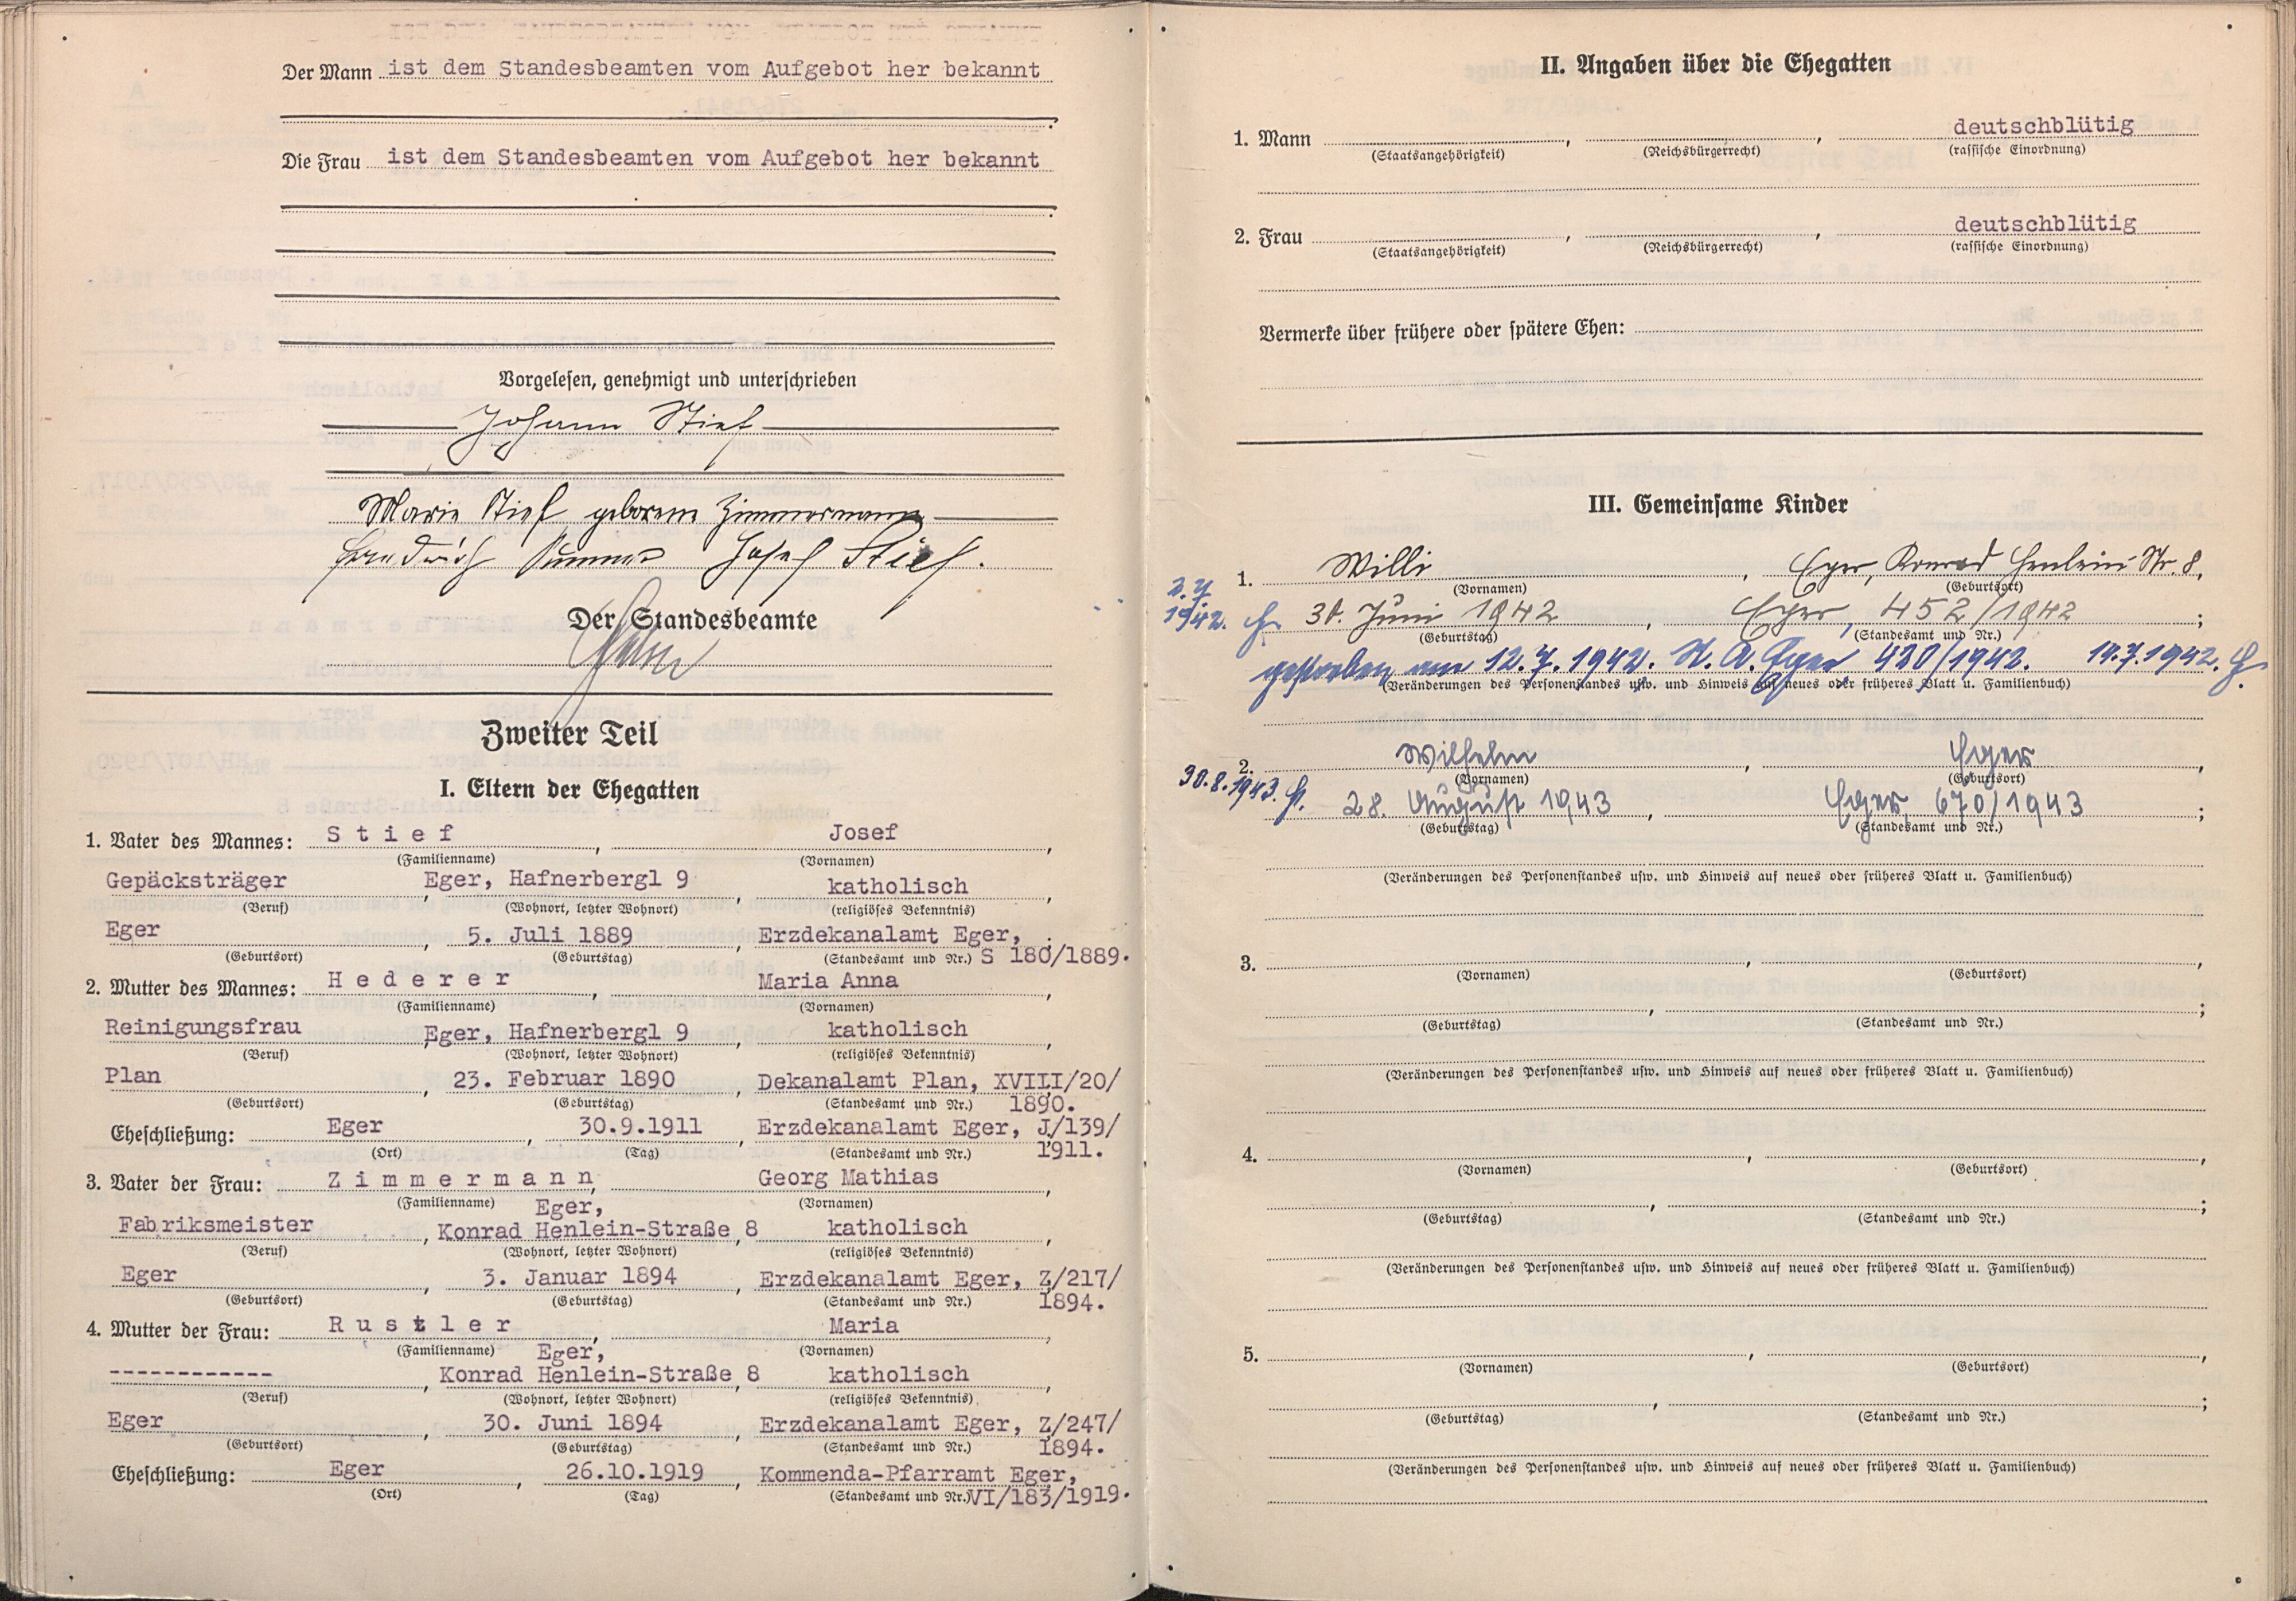 Der Mann ist dem Standesbeamten vom Aufgebot her bekannt
Die Frau ist dem Standesbeamten vom Aufgebot her bekannt
Vorgelesen, genehmigt und unterschrieben
Johann Stief
Marie Stief geborene Zimmermann
Friedrich Summer Josef Stief.
Der Standesbeamte
Zweiter Teil
I. Eltern der Ehegatten
1. Vater des Mannes: Stief, Josef
(Familienname) (Vornamen)
Gepäcksträger, Eger, Hafnerbergl 9, katholisch,
(Beruf) (Wohnort, letzter Wohnort) (religiöses Bekenntnis)
Eger, 5. Juli 1889, Erzdekanalamt Eger,
(Geburtsort) (Geburtstag) (Standesamt und Nr.) S 180/1889.
2. Mutter des Mannes: Hederer, Maria Anna,
(Familienname) (Vornamen)
Reinigungsfrau, Eger, Hafnerbergl 9, katholisch,
(Beruf) (Wohnort, letzter Wohnort) (religiöses Bekenntnis)
Plan, 23. Februar 1890, Dekanalamt Plan, XVIII/20/
(Geburtsort) (Geburtstag) (Standesamt und Nr.) 1890.
Eheschließung: Eger, 30.9.1911, Erzdekanalamt Eger, J/139/
(Ort) (Tag) (Standesamt und Nr.) 1911.
3. Vater der Frau: Zimmermann, Georg Mathias,
(Familienname) Eger, (Vornamen)
Fabriksmeister, Konrad Henlein-Straße 8, katholisch,
(Beruf) (Wohnort, letzter Wohnort) (religiöses Bekenntnis)
Eger, 3. Januar 1894, Erzdekanalamt Eger, Z/217/
(Geburtsort) (Geburtstag) (Standesamt und Nr.) 1894.
4. Mutter der Frau: Rustler, Maria,
(Familienname) Eger, (Vornamen)
------------, Konrad Henlein-Straße 8, katholisch,
(Beruf) (Wohnort, letzter Wohnort) (religiöses Bekenntnis)
Eger, 30. Juni 1894, Erzdekanalamt Eger, Z/247/
(Geburtsort) (Geburtstag) (Standesamt und Nr.) 1894.
Eheschließung: Eger, 26.10.1919, Kommenda-Pfarramt Eger,
(Ort) (Tag) (Standesamt und Nr.) VI/183/1919.
II. Angaben über die Ehegatten
1. Mann, , deutschblütig
(Staatsangehörigkeit) (Reichsbürgerrecht) (rassische Einordnung)
2. Frau, , deutschblütig
(Staatsangehörigkeit) (Reichsbürgerrecht) (rassische Einordnung)
Vermerke über frühere oder spätere Ehen:
III. Gemeinsame Kinder
1. Willi, Eger, Konrad Henlein Str. 8,
(Vornamen) (Geburtsort)
2.7.
1942. 30. Juni 1942, Eger, 452/1942;
(Geburtstag) (Standesamt und Nr.)
gestorben am 12.7.1942. St. A. Eger 420/1942. 14.7.1942.
(Veränderungen des Personenstandes usw. und Hinweis auf neues oder früheres Blatt u. Familienbuch)
2. Wilhelm, Eger,
(Vornamen) (Geburtsort)
30.8.1943. 28. August 1943, Eger, 670/1943;
(Geburtstag) (Standesamt und Nr.)
(Veränderungen des Personenstandes usw. und Hinweis auf neues oder früheres Blatt u. Familienbuch)
3. , ,
(Vornamen) (Geburtsort)
, ;
(Geburtstag) (Standesamt und Nr.)
(Veränderungen des Personenstandes usw. und Hinweis auf neues oder früheres Blatt u. Familienbuch)
4. , ,
(Vornamen) (Geburtsort)
, ;
(Geburtstag) (Standesamt und Nr.)
(Veränderungen des Personenstandes usw. und Hinweis auf neues oder früheres Blatt u. Familienbuch)
5. , ,
(Vornamen) (Geburtsort)
, ;
(Geburtstag) (Standesamt und Nr.)
(Veränderungen des Personenstandes usw. und Hinweis auf neues oder früheres Blatt u. Familienbuch)